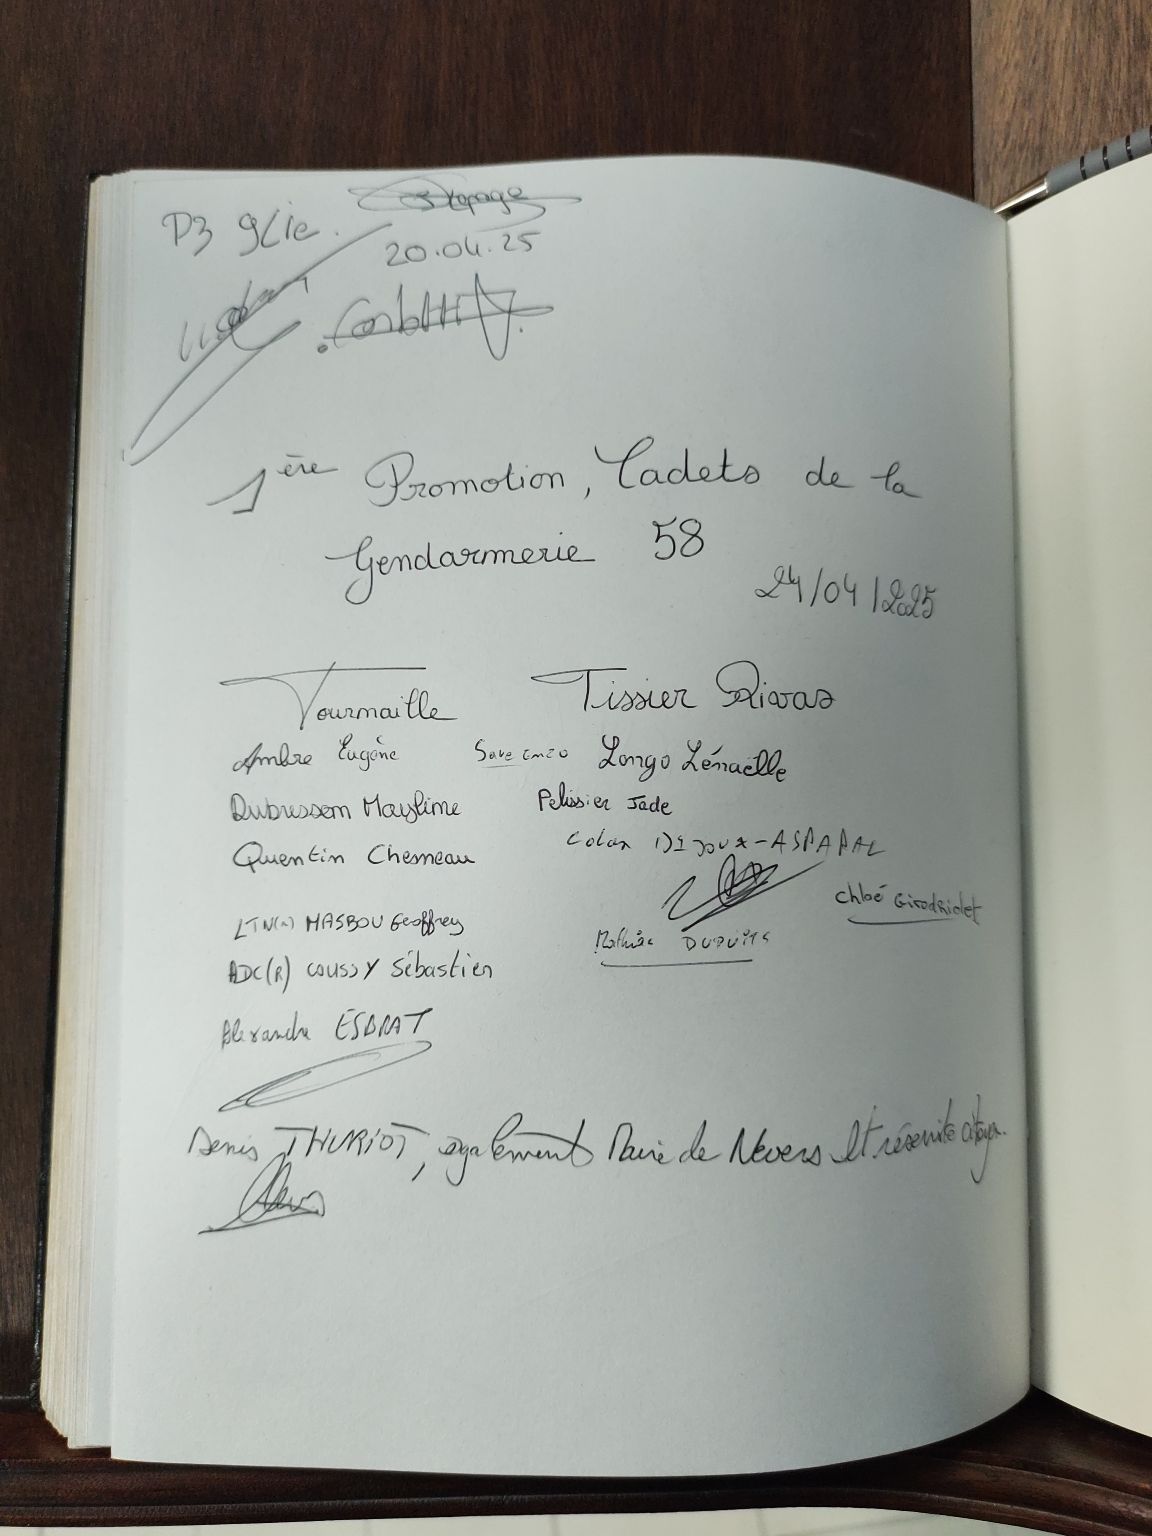 P3 gCie.
20.04.25
1ère Promotion, Cadets de la
Gendarmerie 58
24/04/2025
Tournaille Tissier Rivas
Ambre Eugène Save Enzo Longo Lénaëlle
Maylime Pelissier Jade
Quentin Chesneau
Chloé
MASBOU Geoffrey
Mathias DUPUITS
ADC(R) COUSSY Sébastien
Alexandre ESBRAT
Denis THURIOT, également Maire de Nevers et réserviste citoyen.